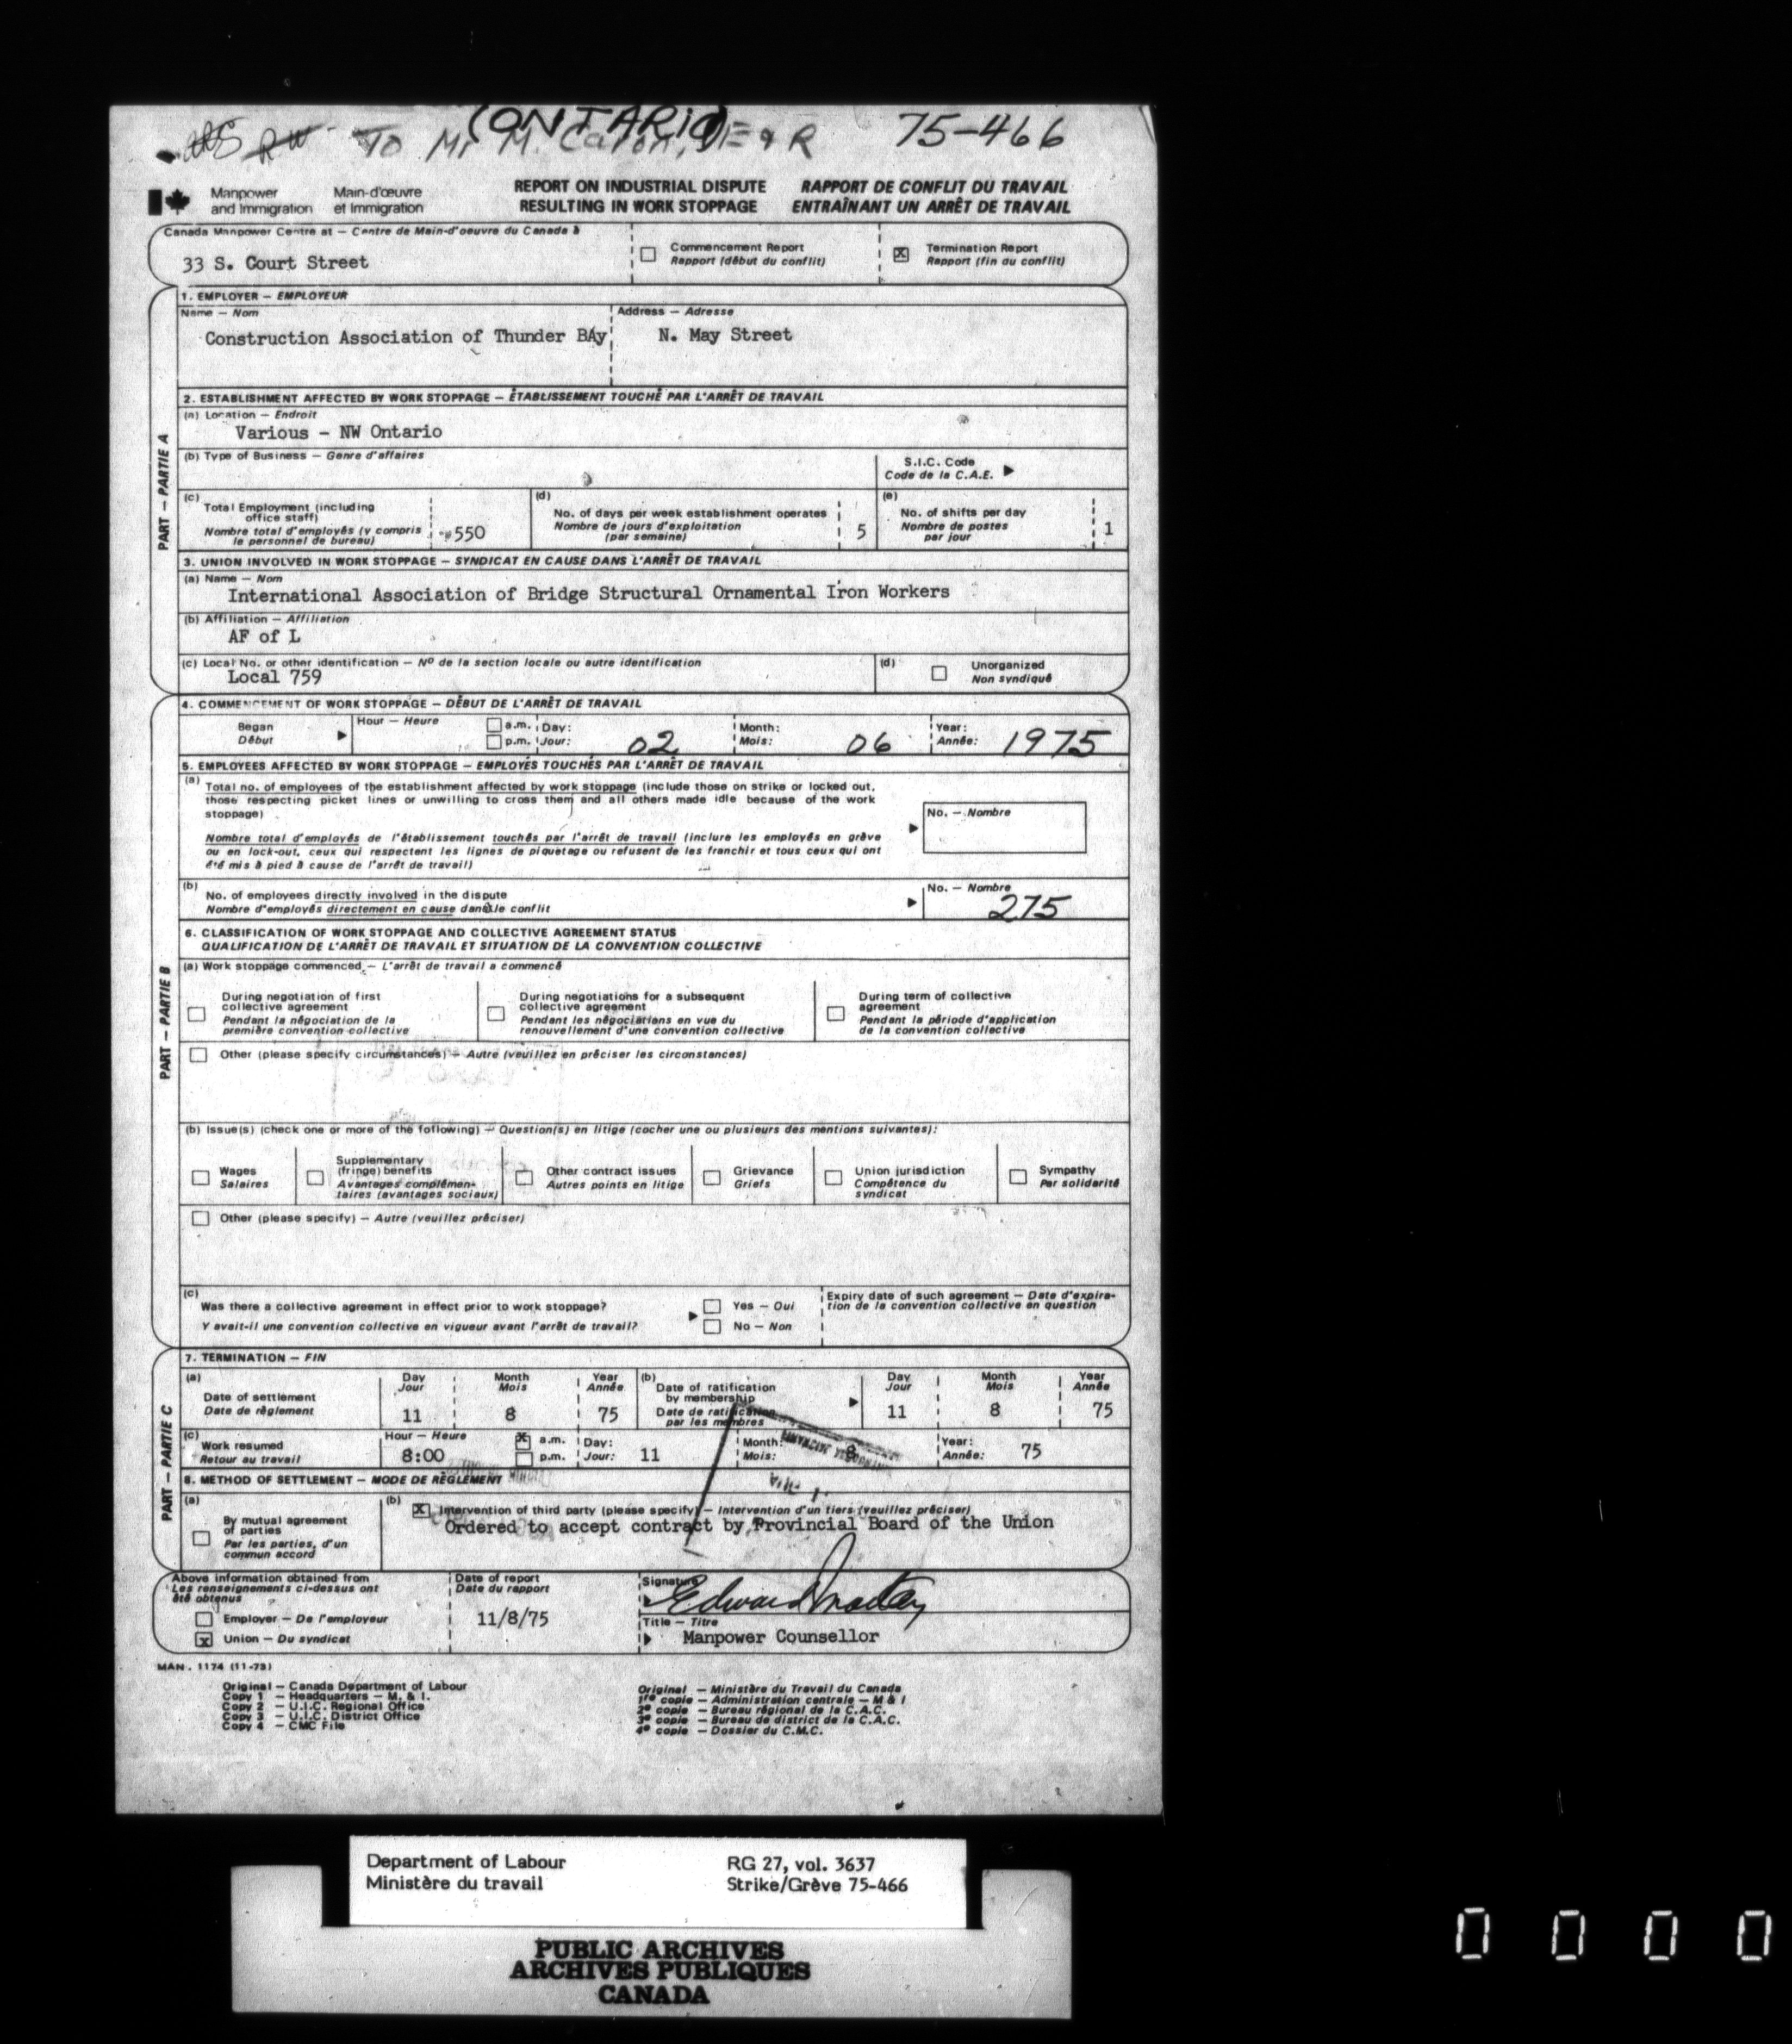 (ONTARIO)
To Mr M. Caron, E & R 75-466
Manpower Main-d'œuvre
and Immigration et Immigration
REPORT ON INDUSTRIAL DISPUTE RAPPORT DE CONFLIT DU TRAVAIL
RESULTING IN WORK STOPPAGE ENTRAÎNANT UN ARRÊT DE TRAVAIL
Canada Manpower Centre at — Centre de Main-d'oeuvre du Canada à
33 S. Court Street
Commencement Report
Rapport (début du conflit)
X Termination Report
Rapport (fin du conflit)
PART — PARTIE A
1. EMPLOYER — EMPLOYEUR
Name — Nom
Construction Association of Thunder BAy
Address — Adresse
N. May Street
2. ESTABLISHMENT AFFECTED BY WORK STOPPAGE — ÉTABLISSEMENT TOUCHÉ PAR L'ARRÊT DE TRAVAIL
(a) Location — Endroit
Various - NW Ontario
(b) Type of Business — Genre d'affaires
S.I.C. Code
Code de la C.A.E.
(c)
Total Employment (including
office staff)
Nombre total d'employés (y compris
le personnel de bureau)
550
(d)
No. of days per week establishment operates
Nombre de jours d'exploitation
(par semaine)
5
(e)
No. of shifts per day
Nombre de postes
par jour
1
3. UNION INVOLVED IN WORK STOPPAGE — SYNDICAT EN CAUSE DANS L'ARRÊT DE TRAVAIL
(a) Name — Nom
International Association of Bridge Structural Ornamental Iron Workers
(b) Affiliation — Affiliation
AF of L
(c) Local No. or other identification — Nº de la section locale ou autre identification
Local 759
(d)
Unorganized
Non syndiqué
PART — PARTIE B
4. COMMENCEMENT OF WORK STOPPAGE — DÉBUT DE L'ARRÊT DE TRAVAIL
Began
Début
Hour — Heure
a.m.
p.m.
Day:
Jour: 02
Month:
Mois: 06
Year:
Année: 1975
5. EMPLOYEES AFFECTED BY WORK STOPPAGE — EMPLOYÉS TOUCHÉS PAR L'ARRÊT DE TRAVAIL
(a) Total no. of employees of the establishment affected by work stoppage (include those on strike or locked out,
those respecting picket lines or unwilling to cross them and all others made idle because of the work
stoppage)
Nombre total d'employés de l'établissement touchés par l'arrêt de travail (inclure les employés en grève
ou en lock-out, ceux qui respectent les lignes de piquetage ou refusent de les franchir et tous ceux qui ont
été mis à pied à cause de l'arrêt de travail)
No. — Nombre
(b)
No. of employees directly involved in the dispute
Nombre d'employés directement en cause dans le conflit
No. — Nombre
275
6. CLASSIFICATION OF WORK STOPPAGE AND COLLECTIVE AGREEMENT STATUS
QUALIFICATION DE L'ARRÊT DE TRAVAIL ET SITUATION DE LA CONVENTION COLLECTIVE
(a) Work stoppage commenced — L'arrêt de travail a commencé
During negotiation of first
collective agreement
Pendant la négociation de la
première convention collective
During negotiations for a subsequent
collective agreement
Pendant les négociations en vue du
renouvellement d'une convention collective
During term of collective
agreement
Pendant la période d'application
de la convention collective
Other (please specify circumstances) — Autre (veuillez en préciser les circonstances)
(b) Issue(s) (check one or more of the following) — Question(s) en litige (cocher une ou plusieurs des mentions suivantes):
Wages
Salaires
Supplementary
(fringe) benefits
Avantages complémen-
taires (avantages sociaux)
Other contract issues
Autres points en litige
Grievance
Griefs
Union jurisdiction
Compétence du
syndicat
Sympathy
Par solidarité
Other (please specify) — Autre (veuillez préciser)
(c)
Was there a collective agreement in effect prior to work stoppage?
Y avait-il une convention collective en vigueur avant l'arrêt de travail?
Yes — Oui
No — Non
Expiry date of such agreement — Date d'expira-
tion de la convention collective en question
PART — PARTIE C
7. TERMINATION — FIN
(a)
Date of settlement
Date de règlement
Day Month Year
Jour Mois Année
11 8 75
(b)
Date of ratification
by membership
Date de ratification
par les membres
Day Month Year
Jour Mois Année
11 8 75
(c)
Work resumed
Retour au travail
Hour — Heure
8:00
X a.m.
p.m.
Day:
Jour: 11
Month:
Mois: 8
Year:
Année: 75
8. METHOD OF SETTLEMENT — MODE DE RÈGLEMENT
(a)
By mutual agreement
of parties
Par les parties, d'un
commun accord
(b)
X Intervention of third party (please specify) — Intervention d'un tiers (veuillez préciser)
Ordered to accept contract by Provincial Board of the Union
Above information obtained from
Les renseignements ci-dessus ont
été obtenus
Employer — De l'employeur
X Union — Du syndicat
Date of report
Date du rapport
11/8/75
Signature
Edward
Title — Titre
Manpower Counsellor
MAN. 1174 (11-73)
Original — Canada Department of Labour
Copy 1 — Headquarters — M. & I.
Copy 2 — U.I.C. Regional Office
Copy 3 — U.I.C. District Office
Copy 4 — CMC File
Original — Ministère du Travail du Canada
1re copie — Administration centrale — M & I
2e copie — Bureau régional de la C.A.C.
3e copie — Bureau de district de la C.A.C.
4e copie — Dossier du C.M.C.
Department of Labour RG 27, vol. 3637
Ministère du travail Strike/Grève 75-466
PUBLIC ARCHIVES
ARCHIVES PUBLIQUES
CANADA
0 0 0 0